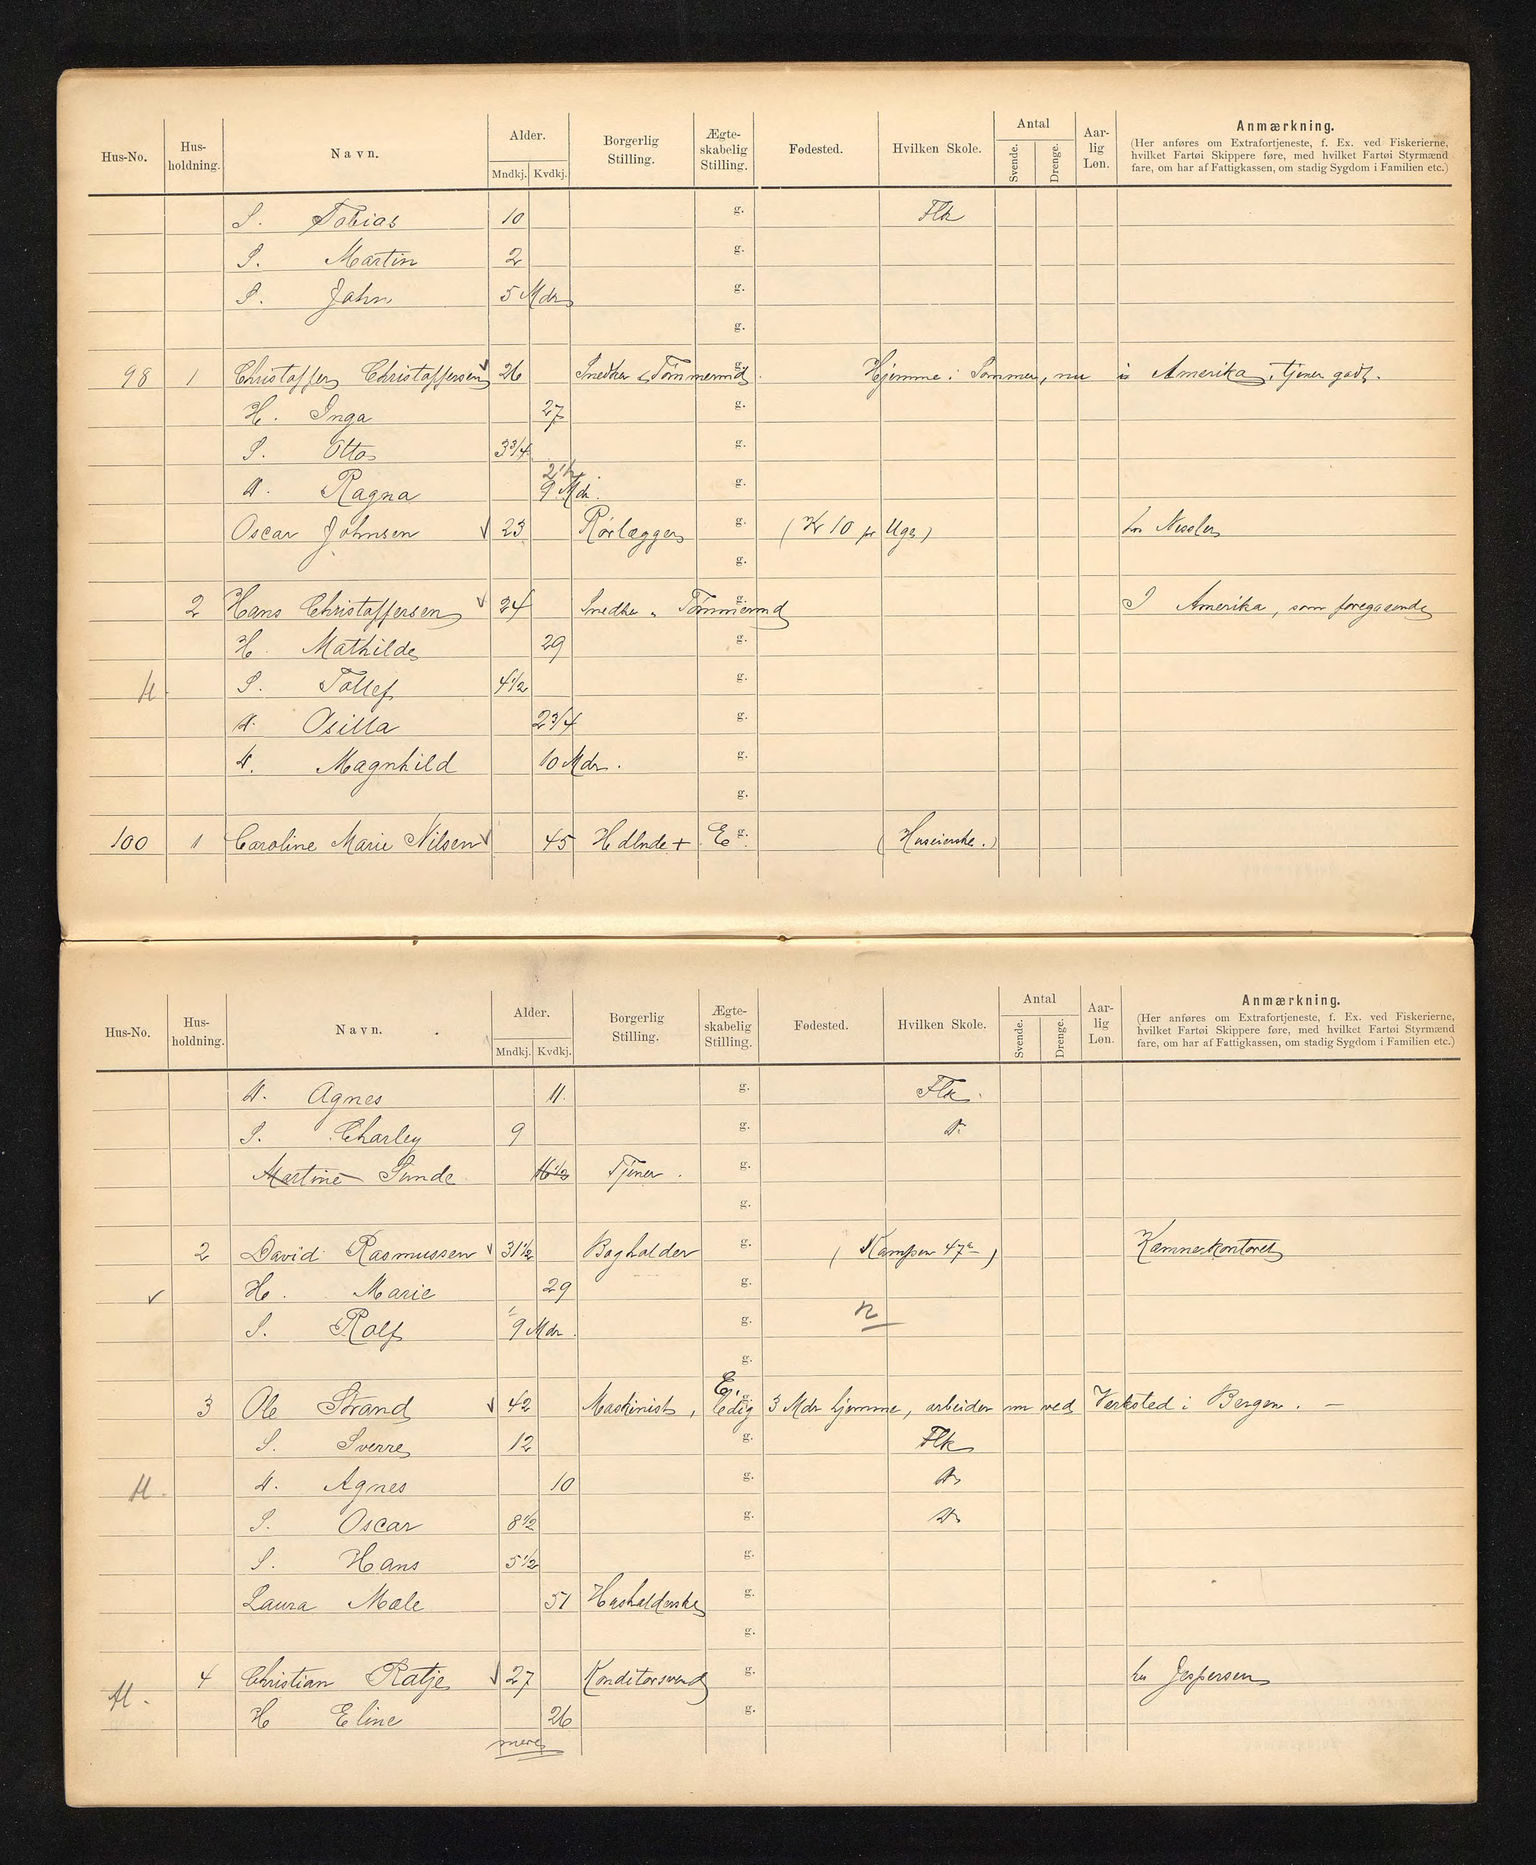 Hus-No. Hus-holdning. Navn. Alder. Mndkj. Kvdkj. Borgerlig Stilling. Ægte-skabelig Stilling. Fødested. Hvilken Skole. Antal Svende. Drenge. Aar-lig Løn. Anmærkning.
(Her anføres om Extrafortjeneste, f. Ex. ved Fiskerierne,
hvilket Fartøi Skippere føre, med hvilket Fartøi Styrmænd
fare, om har af Fattigkassen, om stadig Sygdom i Familien etc.)
S. Tobias 10 g. Flk
S. Martin 2 g.
S. John 5 Mdr g.
g.
98 1 Christoffer Christoffersen 26 Snedker & Tømmermd g. Hjemme i Sommer, nu i Amerika, tjener godt.
H. Inga 27 g.
S. Otto 3 3/4 g.
D. Ragna 2 1/2 9 Mdr. g.
Oscar Johnsen 23 Rørlægger g. (Kr 10 pr Uge) hos Nissler
g.
2 Hans Christoffersen 24 Snedker " Tømmermd g. I Amerika, som foregaaende
H. Mathilde 29 g.
H S. Tollef 4 1/2 g.
D. Osilla 2 3/4 g.
D. Magnhild 10 Mdr. g.
g.
100 1 Caroline Marie Nilsen 45 Hdlnde + E g. (Huseierske.)
Hus-No. Hus-holdning. Navn. Alder. Mndkj. Kvdkj. Borgerlig Stilling. Ægte-skabelig Stilling. Fødested. Hvilken Skole. Antal Svende. Drenge. Aar-lig Løn. Anmærkning.
(Her anføres om Extrafortjeneste, f. Ex. ved Fiskerierne,
hvilket Fartøi Skippere føre, med hvilket Fartøi Styrmænd
fare, om har af Fattigkassen, om stadig Sygdom i Familien etc.)
D. Agnes 11. g. Flk.
S. Charley 9 g. Do
Martine Sunde 16 1/2 Tjener. g.
g.
2 David Rasmussen 31 1/2 Bogholder g. (Kampen 47a) Kæmnerkontoret
H. Marie 29 g.
S. Rolf 9 Mdr. g. n
g.
3 Ole Strand 42 Maskinist, E. ledig g. 3 Mdr hjemme, arbeider nu ved Verksted i Bergen. —
S. Sverre 12 g. Flk
H. D. Agnes 10 g. Do
S. Oscar 8 1/2 g. Do
S. Hans 5 1/2 g.
Laura Mæle 51 Husholderske g.
g.
4 Christian Ratje 27 Konditorsvend g. hos Jespersen
H. H Eline 26 g.
mere